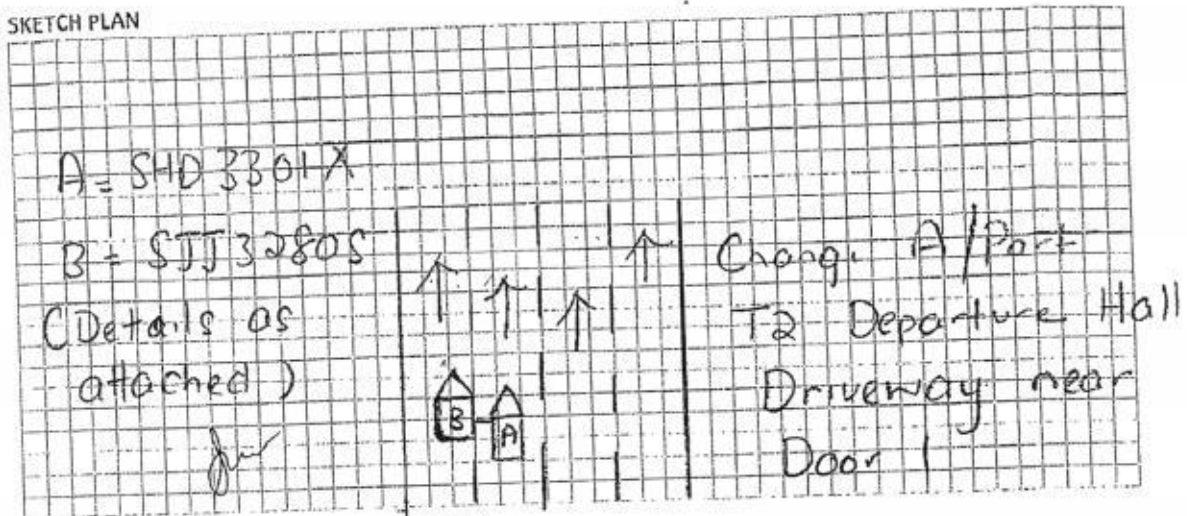 SKETCH PLAN
A = SHD 3301X
B = SJJ3280S
(Details as
attached)
B
A
Changi A/Port
T2 Departure Hall
Driveway near
Door 1